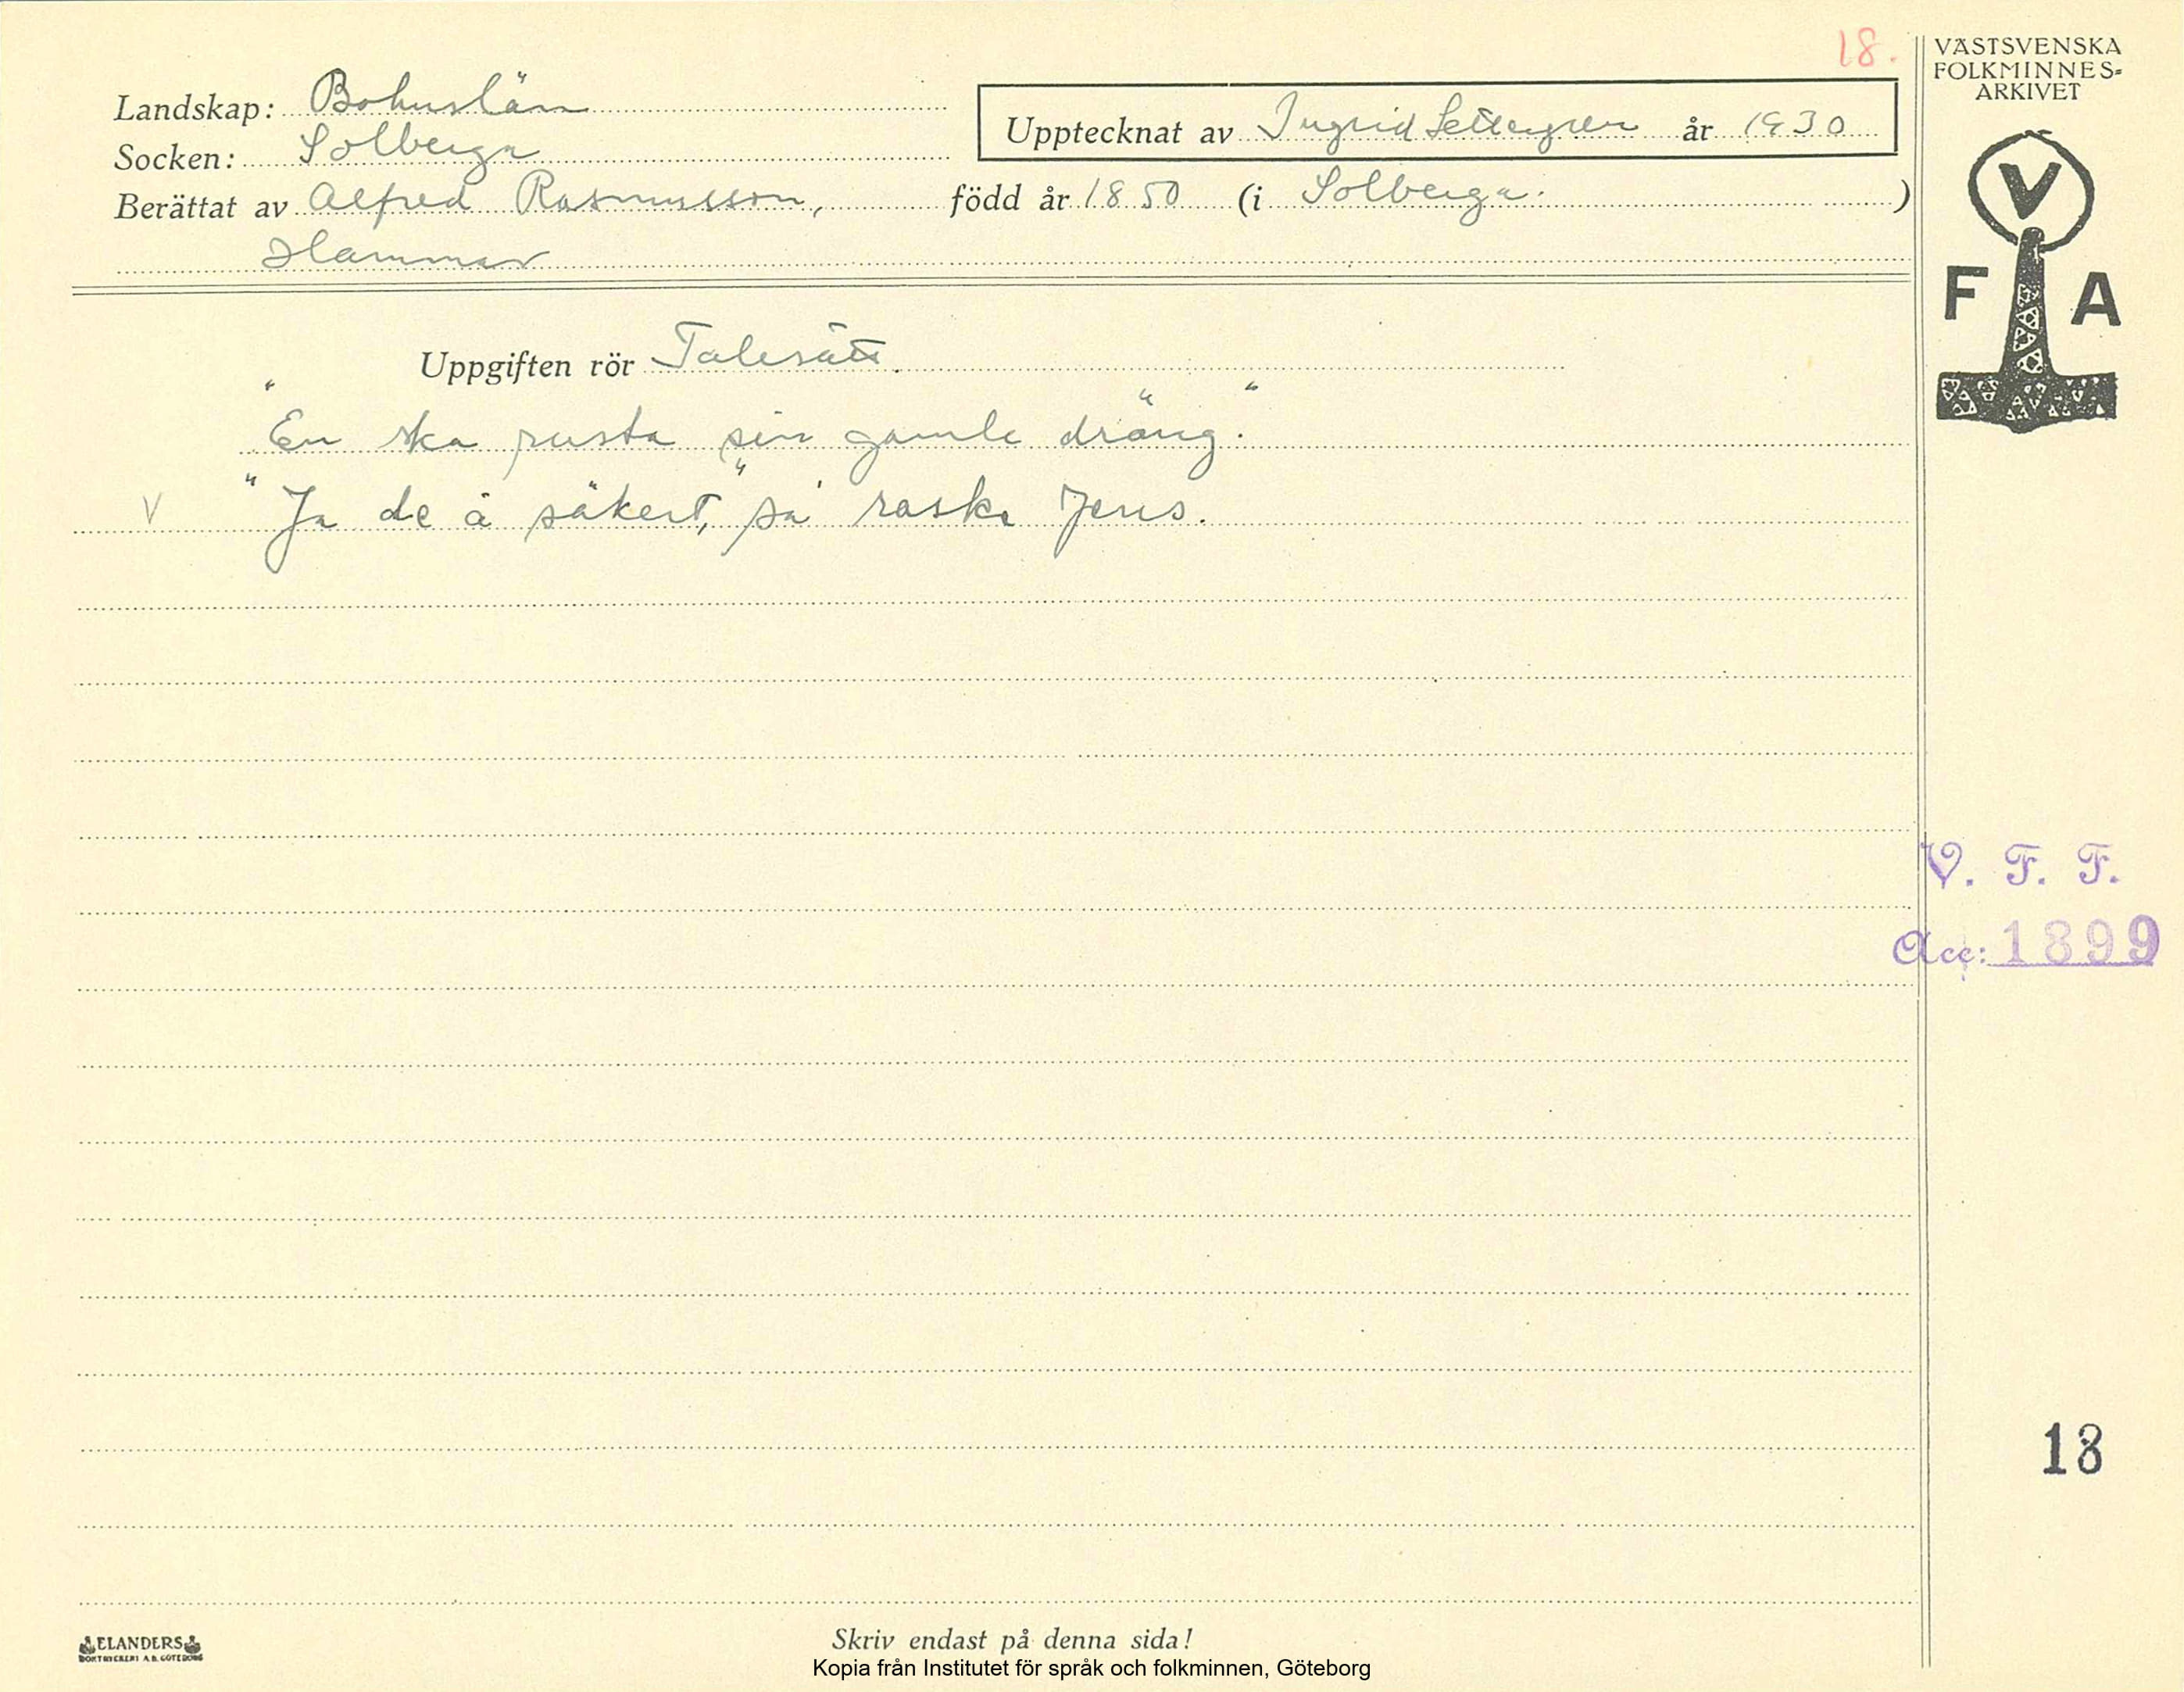 18.
VÄSTSVENSKA
FOLKMINNES-
ARKIVET
Landskap: Bohuslän
Upptecknat av Ingrid Settergren år 1930
Socken: Solberga
Berättat av Alfred Rasmusson, född år 1850 (i Solberga. )
Hammar
V
F A
Uppgiften rör Talesätt.
"En ska pusta sin gamle dräng."
V "Ja de ä säkert," sa' raske Jens.
V. F. F.
Acc: 1899
18
ELANDERS
BOKTRYCKERI A.B. GÖTEBORG
Skriv endast på denna sida!
Kopia från Institutet för språk och folkminnen, Göteborg